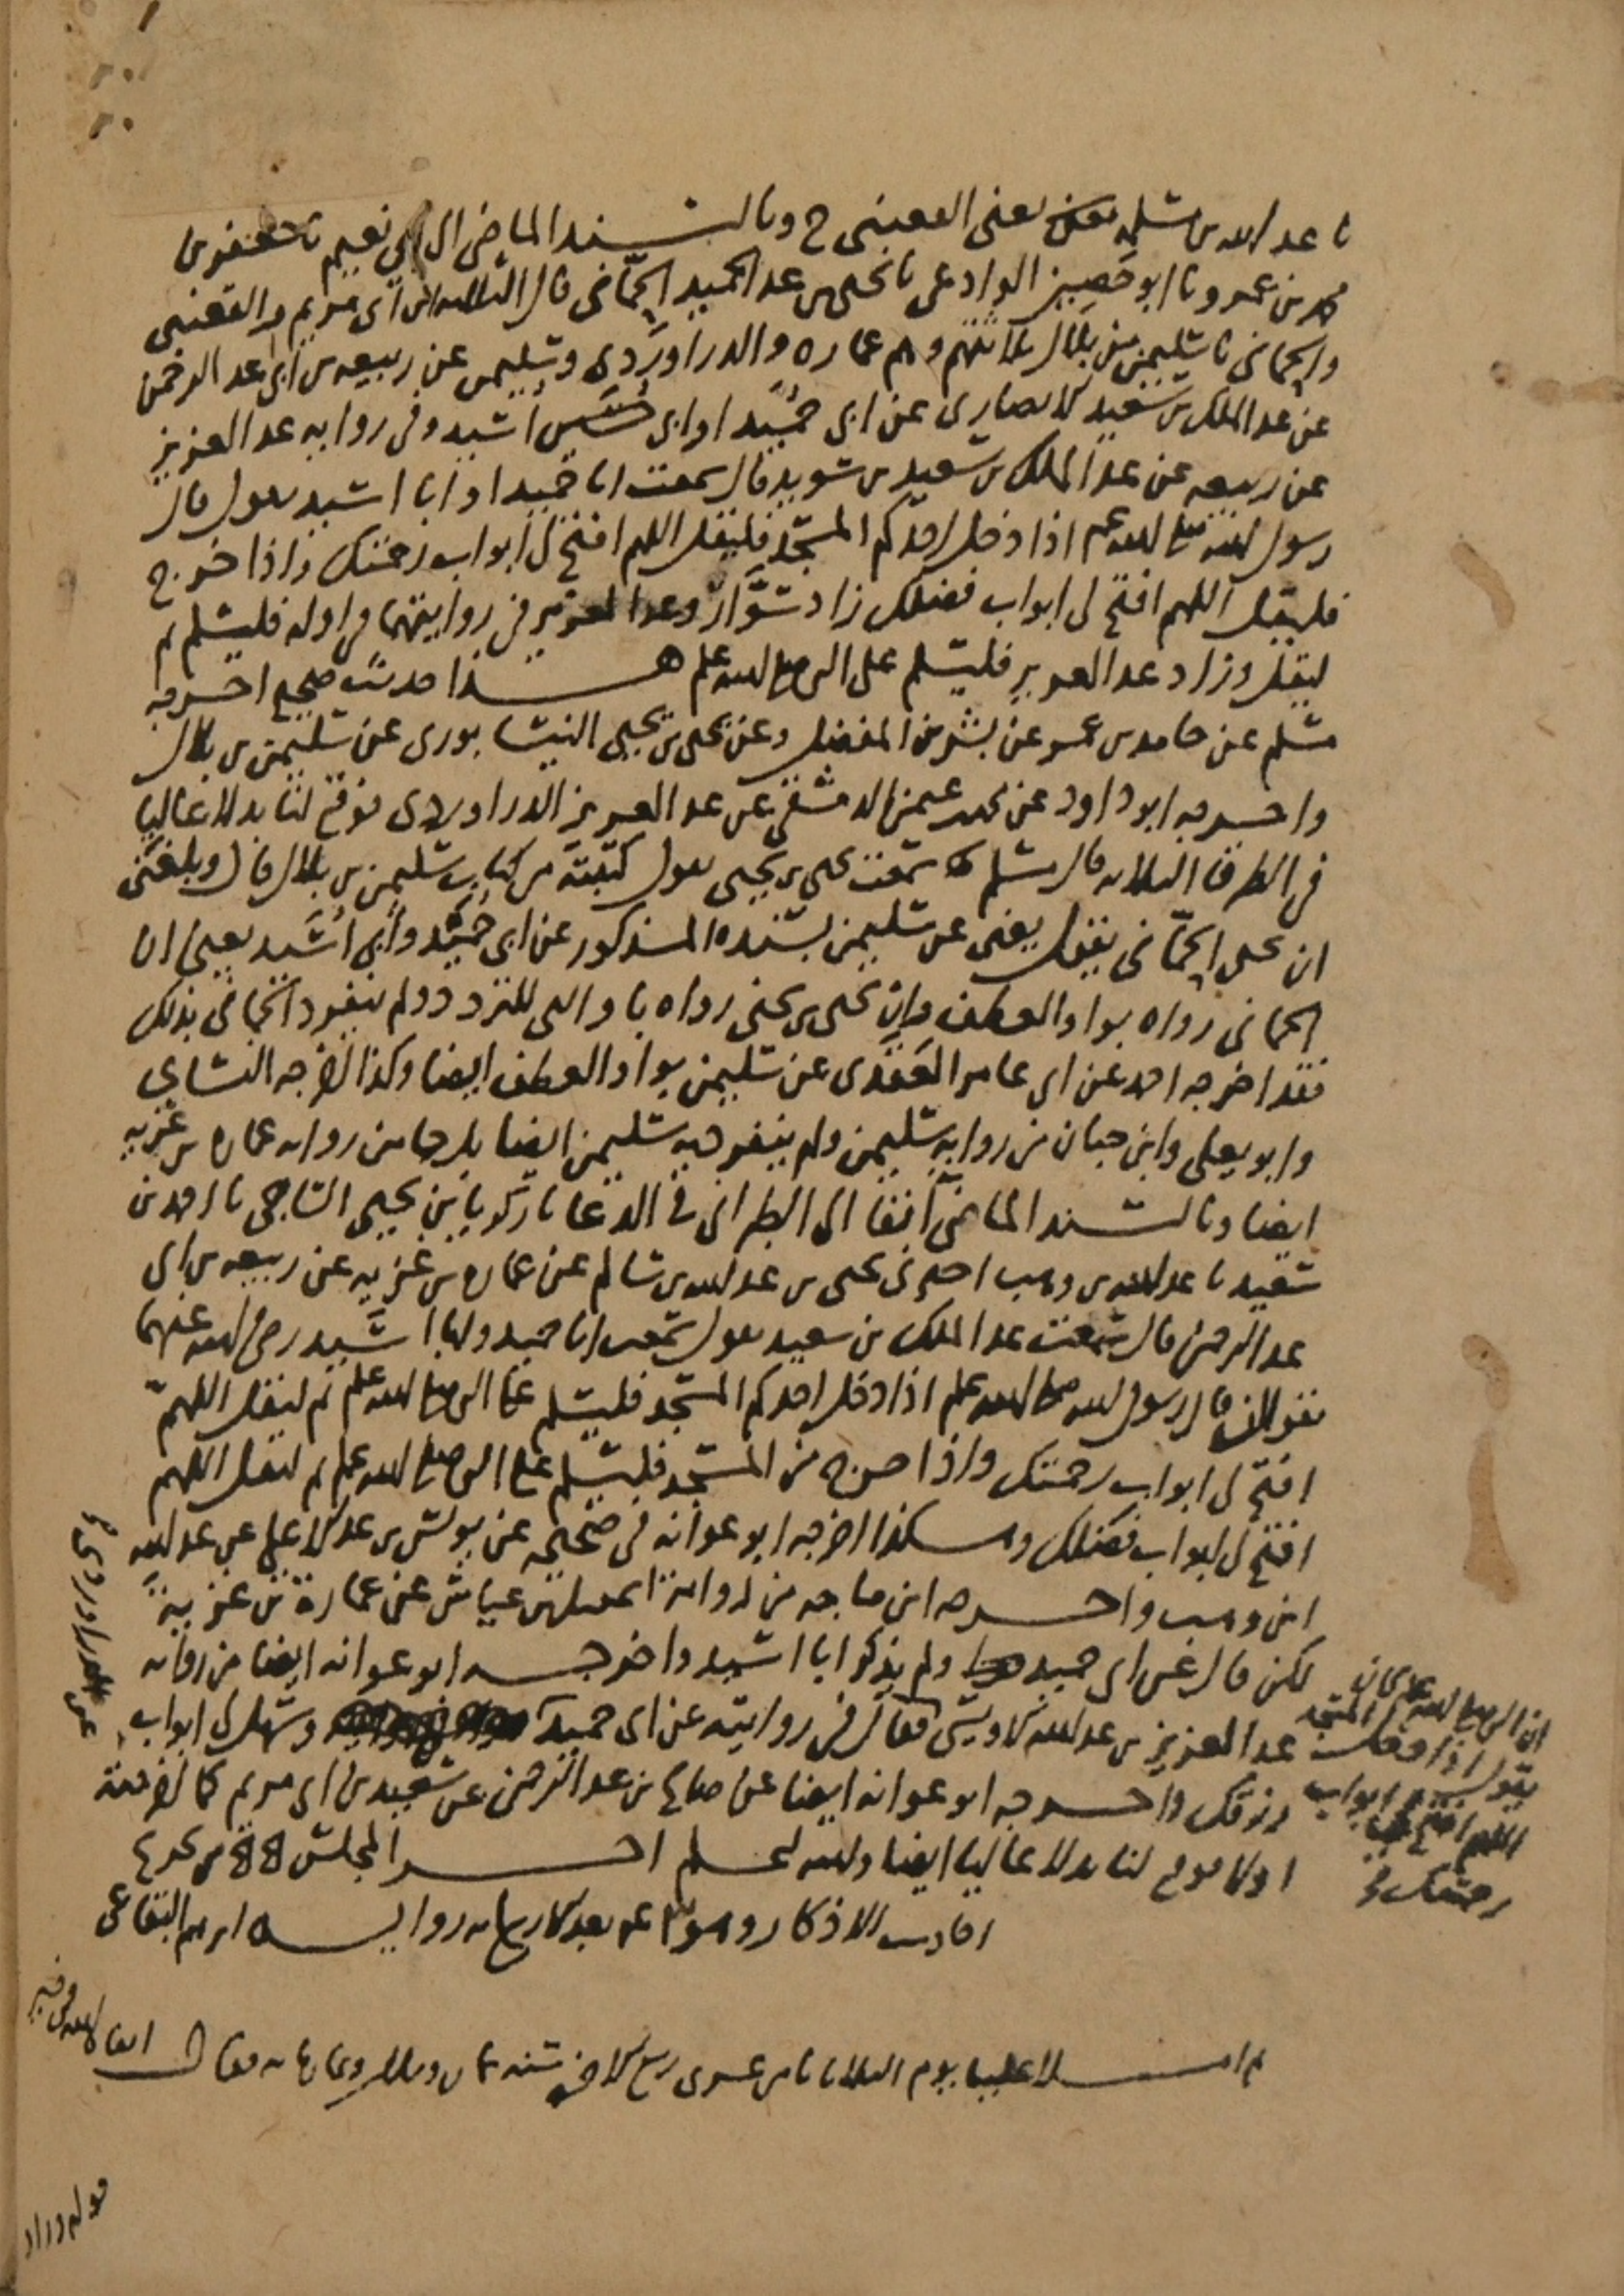 نا عبد الله بن مسلمة يعني القعنبي ح وبالسند الماضي الى ابي نعيم نا جعفر بن
محمد بن عمرو نا ابو حصين الوادعي نا يحيى بن عبد الحميد الحماني قال الثلاثة ابن ابي مريم والقعنبي
والحماني نا سليمن بن بلال ثلاثتهم وهم عمارة والدراوردي وسليمن عن ربيعه بن ابي عبد الرحمن
عن عبد الملك بن سعيد الانصاري عن ابي حميد او ابي اسيد وفي رواية عبد العزيز
عن ربيعه عن عبد الملك بن سعيد بن سويد قال سمعت ابا حميد او ابا اسيد يقول قال
رسول الله صلى الله عليه وسلم اذا دخل احدكم المسجد فليقل اللهم افتح لي ابواب رحمتك واذا خرج
فليقل اللهم افتح لي ابواب فضلك زاد سوار وعبد العزيز في روايتهما في اوله فليسلم ثم
ليقل وزاد عبد العزيز فليسلم على النبي صلى الله عليه وسلم هذا حديث صحيح اخرجه
مسلم عن حامد بن عمر عن بشر بن المفضل وعن يحيى بن يحيى النيسابوري عن سليمن بن بلال
واخرجه ابو داود عن محمد بن عثمن الدمشقي عن عبد العزيز الدراوردي فوقع لنا بدلا عاليا
في الطرق الثلاثة قال مسلم سمعت يحيى بن يحيى يقول كتبته من كتاب سليمن بن بلال قال وبلغني
ان يحيى الحماني يقول يعني عن سليمن بسنده المذكور عن ابي حميد وابي اسيد يعني ان
الحماني رواه بواو العطف وان يحيى بن يحيى رواه باو التي للتردد ولم ينفرد الحماني بذلك
فقد اخرجه احمد عن ابي عامر العقدي عن سليمن بواو العطف ايضا وكذا اخرجه النسائي
وابو يعلى وابن حبان من رواية سليمن ولم ينفرد به سليمن ايضا بل جا من رواية عمارة بن غزيه
ايضا وبالسند الماضي آنفا الى الطبراني في الدعا نا زكريا بن يحيى الساجي نا احمد بن
سعيد نا عبد الله بن وهب اخبرني يحيى بن عبد الله بن سالم عن عمارة بن غزيه عن ربيعه بن ابي
عبد الرحمن قال سمعت عبد الملك بن سعيد يقول سمعت ابا حميد وابا اسيد رضي الله عنهما
يقولان قال رسول الله صلى الله عليه وسلم اذا دخل احدكم المسجد فليسلم على النبي صلى الله عليه وسلم ثم ليقل اللهم
افتح لي ابواب رحمتك واذا خرج من المسجد فليسلم على النبي صلى الله عليه وسلم ثم ليقل اللهم
افتح لي ابواب فضلك وهكذا اخرجه ابو عوانه في صحيحه عن يونس بن عبد الاعلى عن عبد الله
ابن وهب واخرجه ابن ماجه من رواية اسمعيل بن عياش عن عمارة بن غزية
لكن قال عن ابي حميد ولم يذكر ابا اسيد واخرجه ابو عوانه ايضا من رواية
عبد العزيز بن عبد الله الاويسي فقال في روايته عن ابي حميد وسهل لي ابواب
رزقك واخرجه ابو عوانه ايضا عن صالح بن عبد الرحمن عن سعيد بن ابي مريم كما اخرجته
اولا فوقع لنا بدلا عاليا ايضا والله اعلم اخر المجلس من تخريج
احاديث الاذكار وهو بعد الاربعمائه رواية ابرهيم البقاعي
عن الدراوردي
ان النبي صلى الله عليه وسلم كان
يقول اذا دخل المسجد
اللهم افتح لي ابواب
رحمتك
ثم املا علينا يوم الثلاثا ثامن عشري ربيع الاخر سنه ثمان وثلاثين وثمان مائه فقال